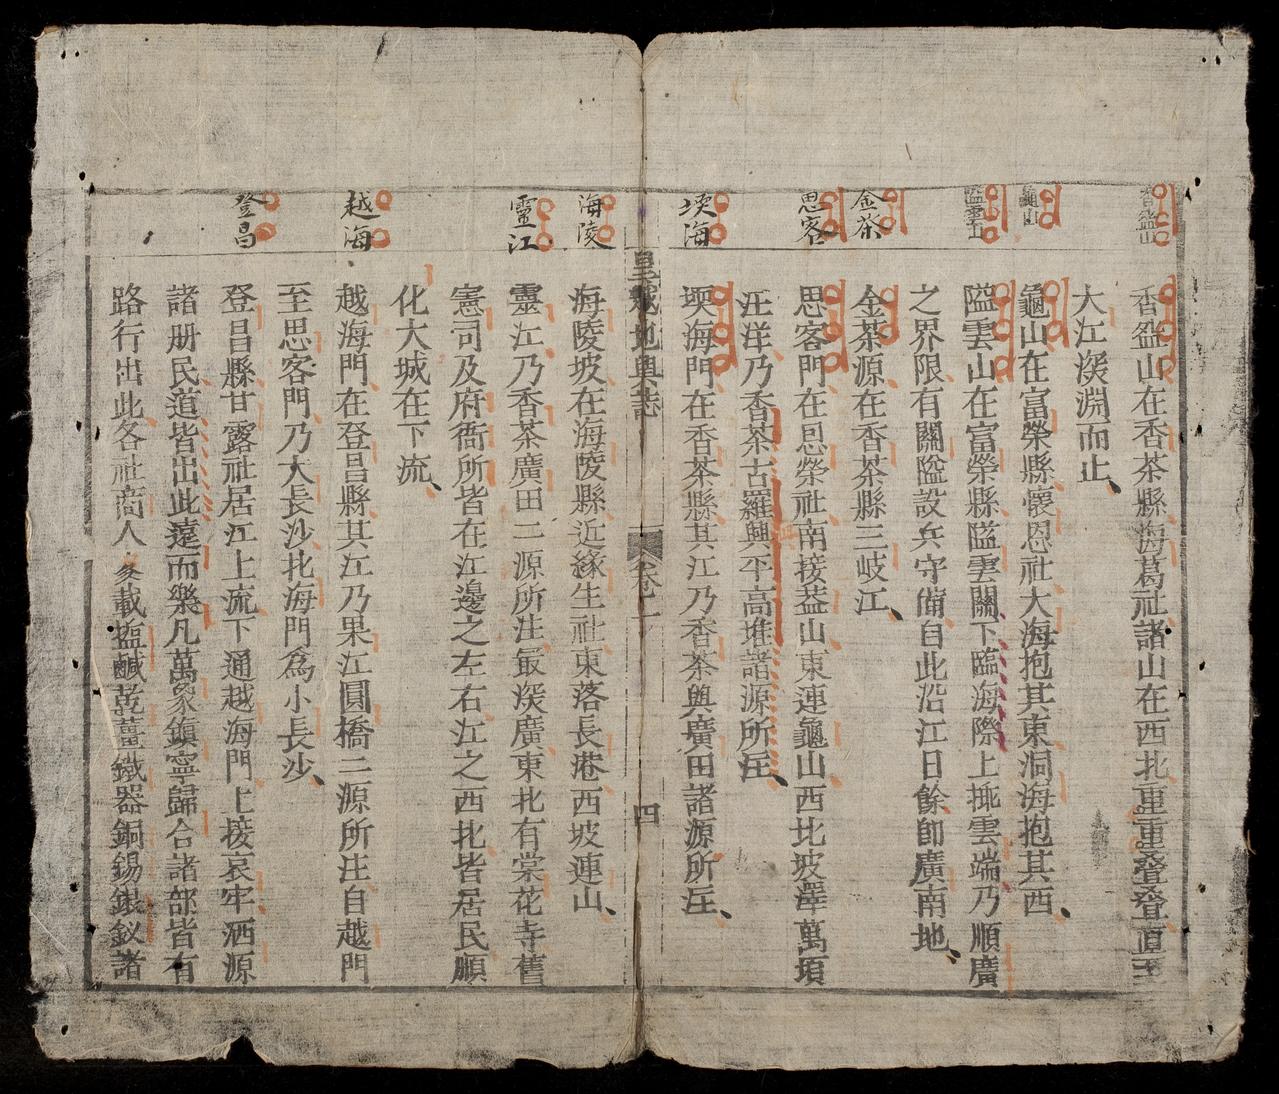 香盆山
香盆山在香茶縣海葛社諸山在西北重重叠叠直至
大江深淵而止
龜山
龜山在富榮縣懷恩社大海抱其東洞海抱其西
隘雲山
隘雲山在富榮縣隘雲關下臨海際上揷雲端乃順廣
之界限有關隘設兵守備自此沿江日餘卽廣南地
金茶
金茶源在香茶縣三岐江
思客
思客門在恩榮社南接葢山東連龜山西北坡澤萬頃
汪洋乃香茶古羅興平高堆諸源所注
堧海
堧海門在香茶縣其江乃香茶與廣田諸源所注
皇越地輿誌
卷一
四
海陵
海陵坡在海陵縣近緣生社東落長港西坡連山
靈江
靈江乃香茶廣田二源所注最深廣東北有棠花寺舊
憲司及府衙所皆在江邊之左右江之西北皆居民順
化大城在下流
越海
越海門在登昌縣其江乃果江圓橋二源所注自越門
至思客門乃大長沙北海門爲小長沙
登昌
登昌縣甘露社居江上流下通越海門上接哀牢洒源
諸册民道皆出此遠而樂凡萬象鎮寧歸合諸部皆有
路行出此各社商人多載塩鹹乾薑鐵器銅錫銀釵諸